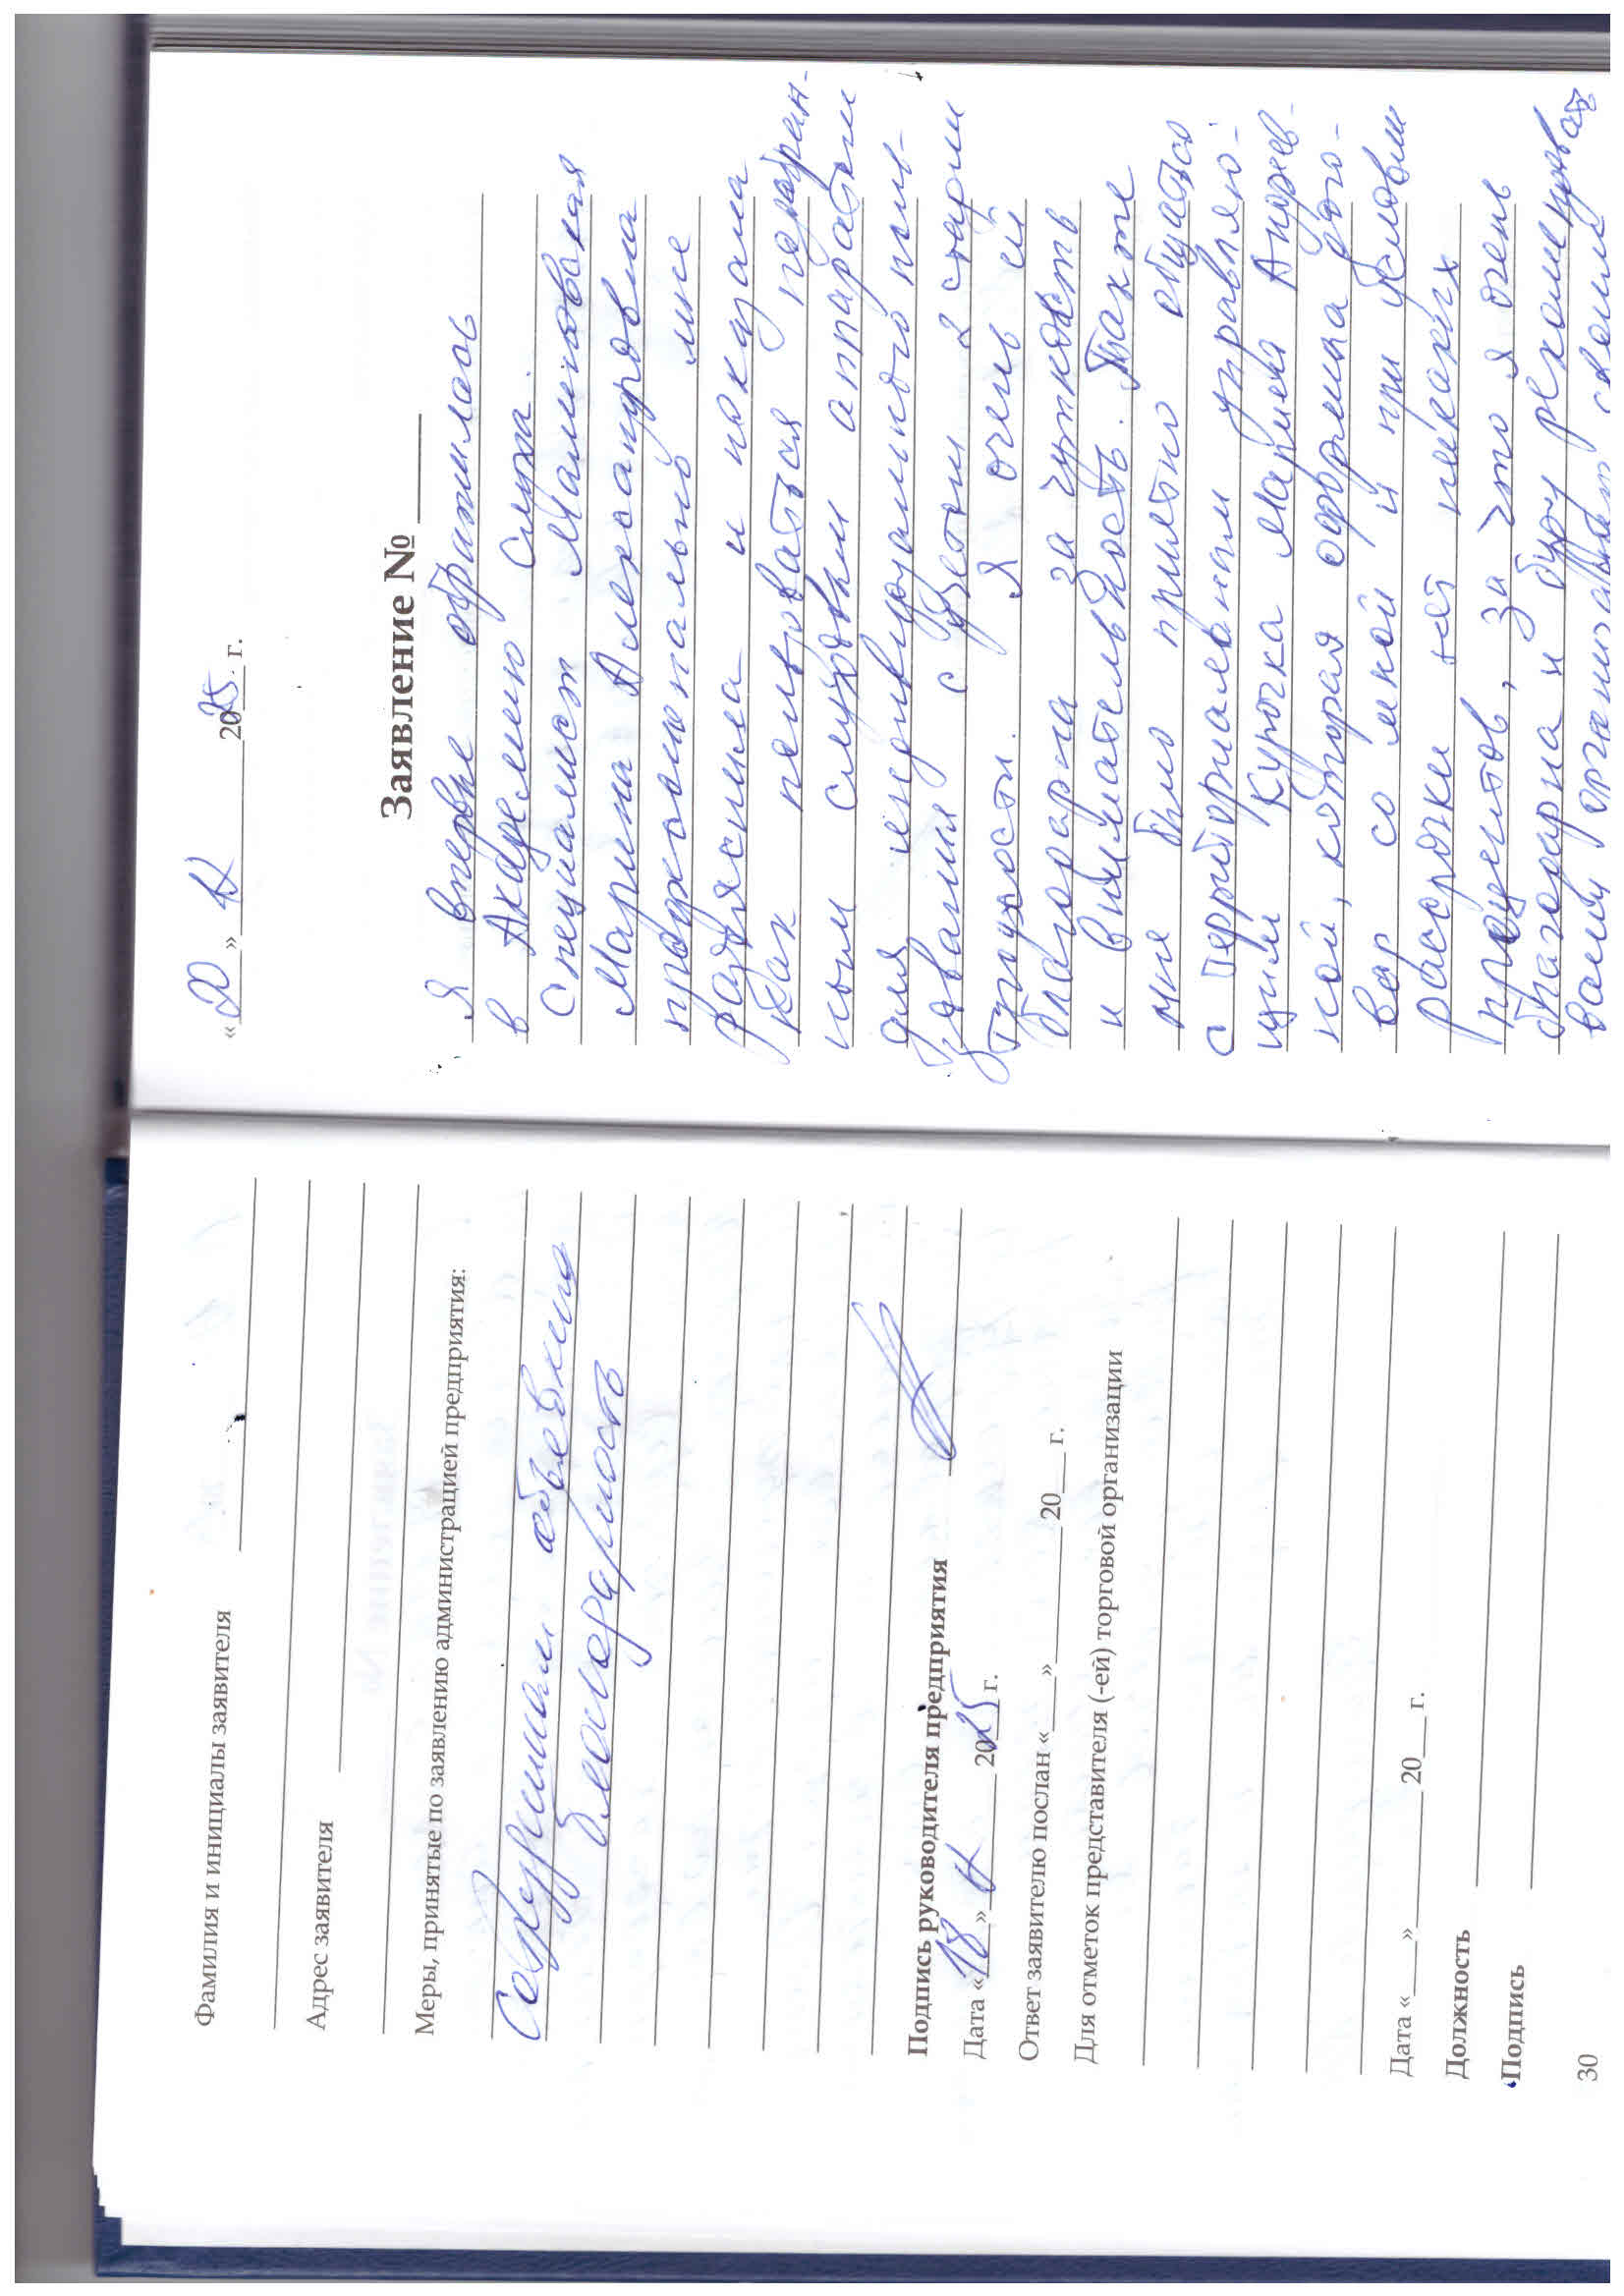 Фамилия и инициалы заявителя
Адрес заявителя
Меры, принятые по заявлению администрацией предприятия:
Сотрудникам объявлена
благодарность
Подпись руководителя предприятия
Дата «18» 11 2025 г.
Ответ заявителю послан «___» ______ 20__ г.
Для отметок представителя (-ей) торговой организации
Дата «___» ______ 20__ г.
Должность
Подпись
30
«20» 11 2025 г.
Заявление № ____
Я впервые обратилась
в Академию Слуха.
Специалист
Марина Александровна
профессионально мне
разъяснила и показала
как пользоваться
ным слуховым аппаратом
для индивидуального
с учетом 2 степени
тугоухости. Я очень ей
благодарна за чуткость
и внимательность. Также
мне было приятно общаться
с территориальным управляю-
щим Курочка Марина Андреев-
ной, которая оформила дого-
вор со мной и при условии
рассрочки нет никаких
процентов, за что я очень
благодарна и буду рекомендовать
вашу организацию своим